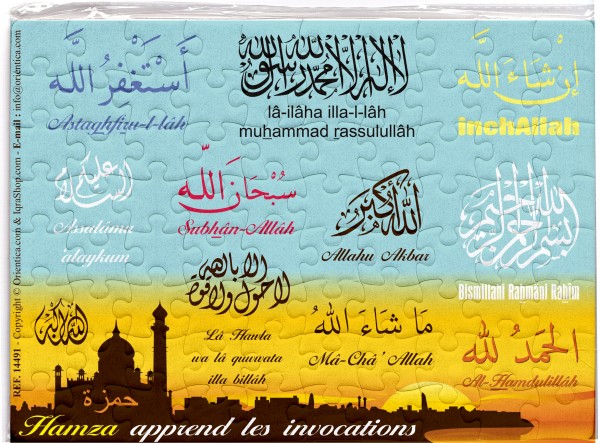 أَسْتَغْفِرُ اللَّه
Astaghfiru-l-lâh
لا إله إلا الله محمد رسول الله
lâ-ilâha illa-l-lâh
muhammad rassulullâh
إِنْ شَاءَ اللَّه
inchAllah
السلام عليكم
Assalâmu
'alaykum
سُبْحَانَ اللَّه
Sabhân-Allâh
الله أكبر
Allahu Akbar
بسم الله الرحمن الرحيم
Bismillahi Rahmâni Rahîm
لا حول ولا قوة إلا بالله
Lâ Hawla
wa lâ quwwata
illa billâh
مَا شَاءَ اللهُ
Mâ-Châ' Allah
الحَمْدُ لله
Al-Hamdulillâh
حمزة
Hamza apprend les invocations
REF. 14491 - Copyright © Orientica.com & IqraShop.com - E-mail : info@orientica.com